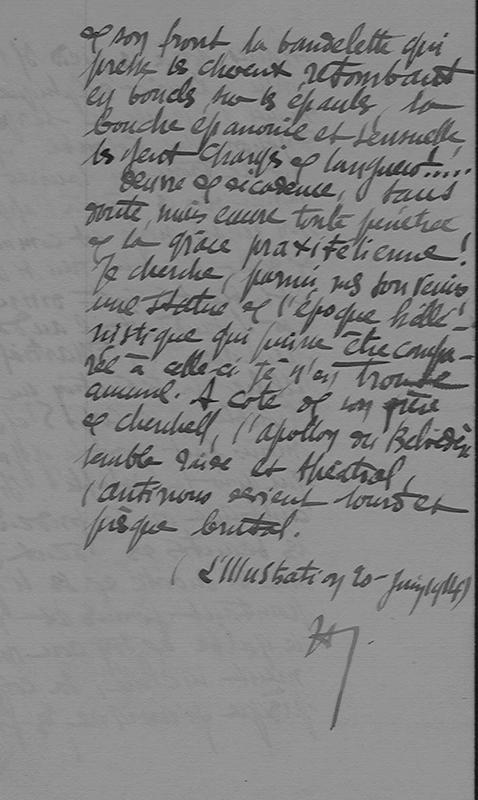 de son front la bandelette qui
presse les cheveux retombant
en boucles sur les épaules, la
bouche épanouie et sensuelle,
les yeux chargés de langueur!.....
Oeuvre de décadence, sans
doute, mais oeuvre toute pénétrée
de la grâce praxitélienne!
Je cherche, parmi mes souvenirs
une statue de l'époque hellé-
nistique qui puisse être compa-
rée à celle-ci je n'en trouve
aucune. A côté de son frère
de Cherchell, l'apollon du Belvédère
semble vide et théâtral,
l'antinous devient lourd et
presque brutal.
(L'Illustration 20 - Juin 1914)